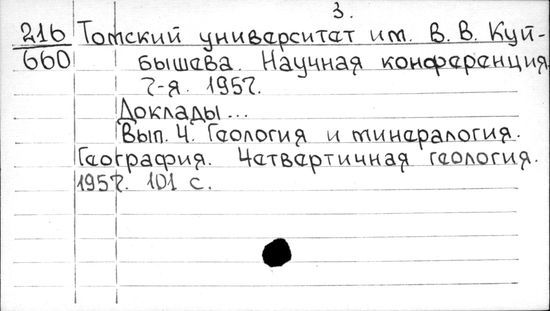 3.
216 Томский университет им. В. В. Куй-
660 бышева. Научная конференция.
7-я. 1957.
Доклады...
Вып. 4. Геология и минералогия.
География. Четвертичная геология.
1957. 101 с.